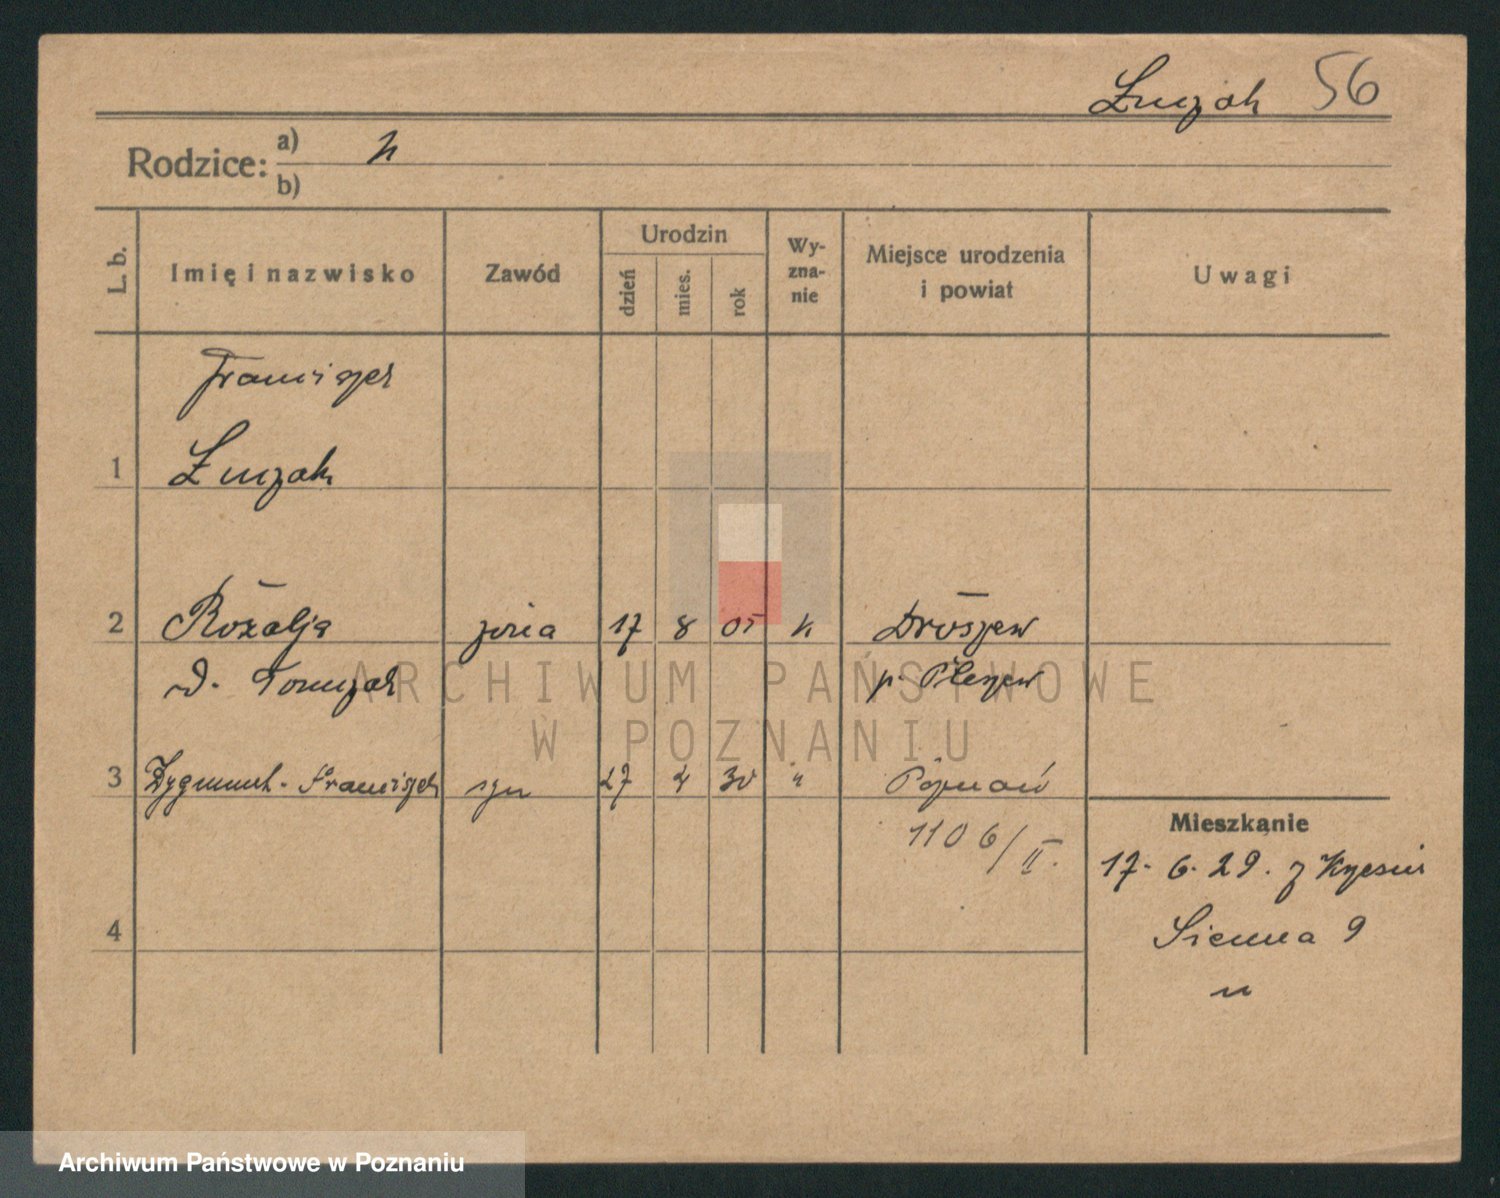 Łuczak 56
Rodzice: a)
b)
L. b. Imię i nazwisko Zawód Urodzin dzień mies. rok Wy-zna-nie Miejsce urodzenia i powiat Uwagi
Franciszek
1 Łuczak
2 Rozalja żona 17 8 05 k Droszew
d. Tomczak p. Pleszew
3 Zygmunt-Franciszek syn 27 4 30 " Poznań
Mieszkanie
1106/II.
17. 6. 29. z
4 Sienna 9
ARCHIWUM PAŃSTWOWE
W POZNANIU
Archiwum Państwowe w Poznaniu